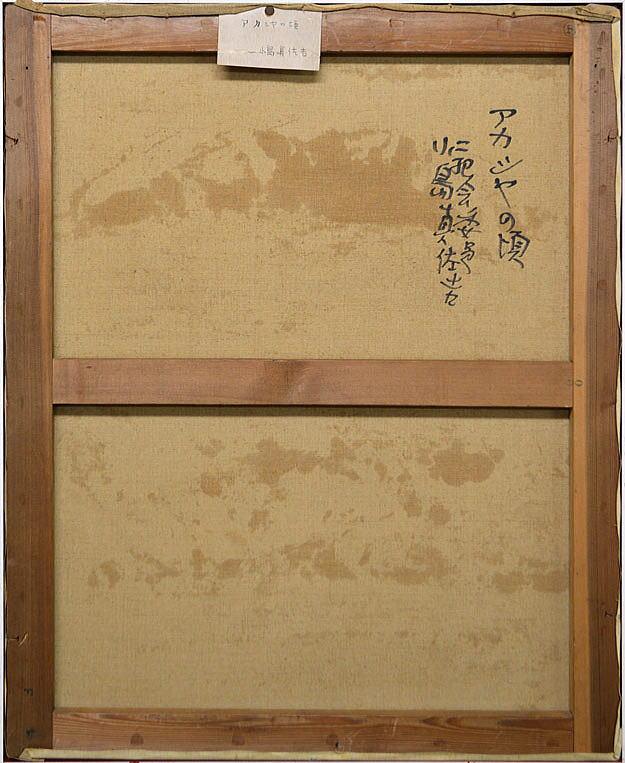 アカシヤの頃
小島眞佐吉
アカシヤの頃
二紀会委員
小島真佐吉